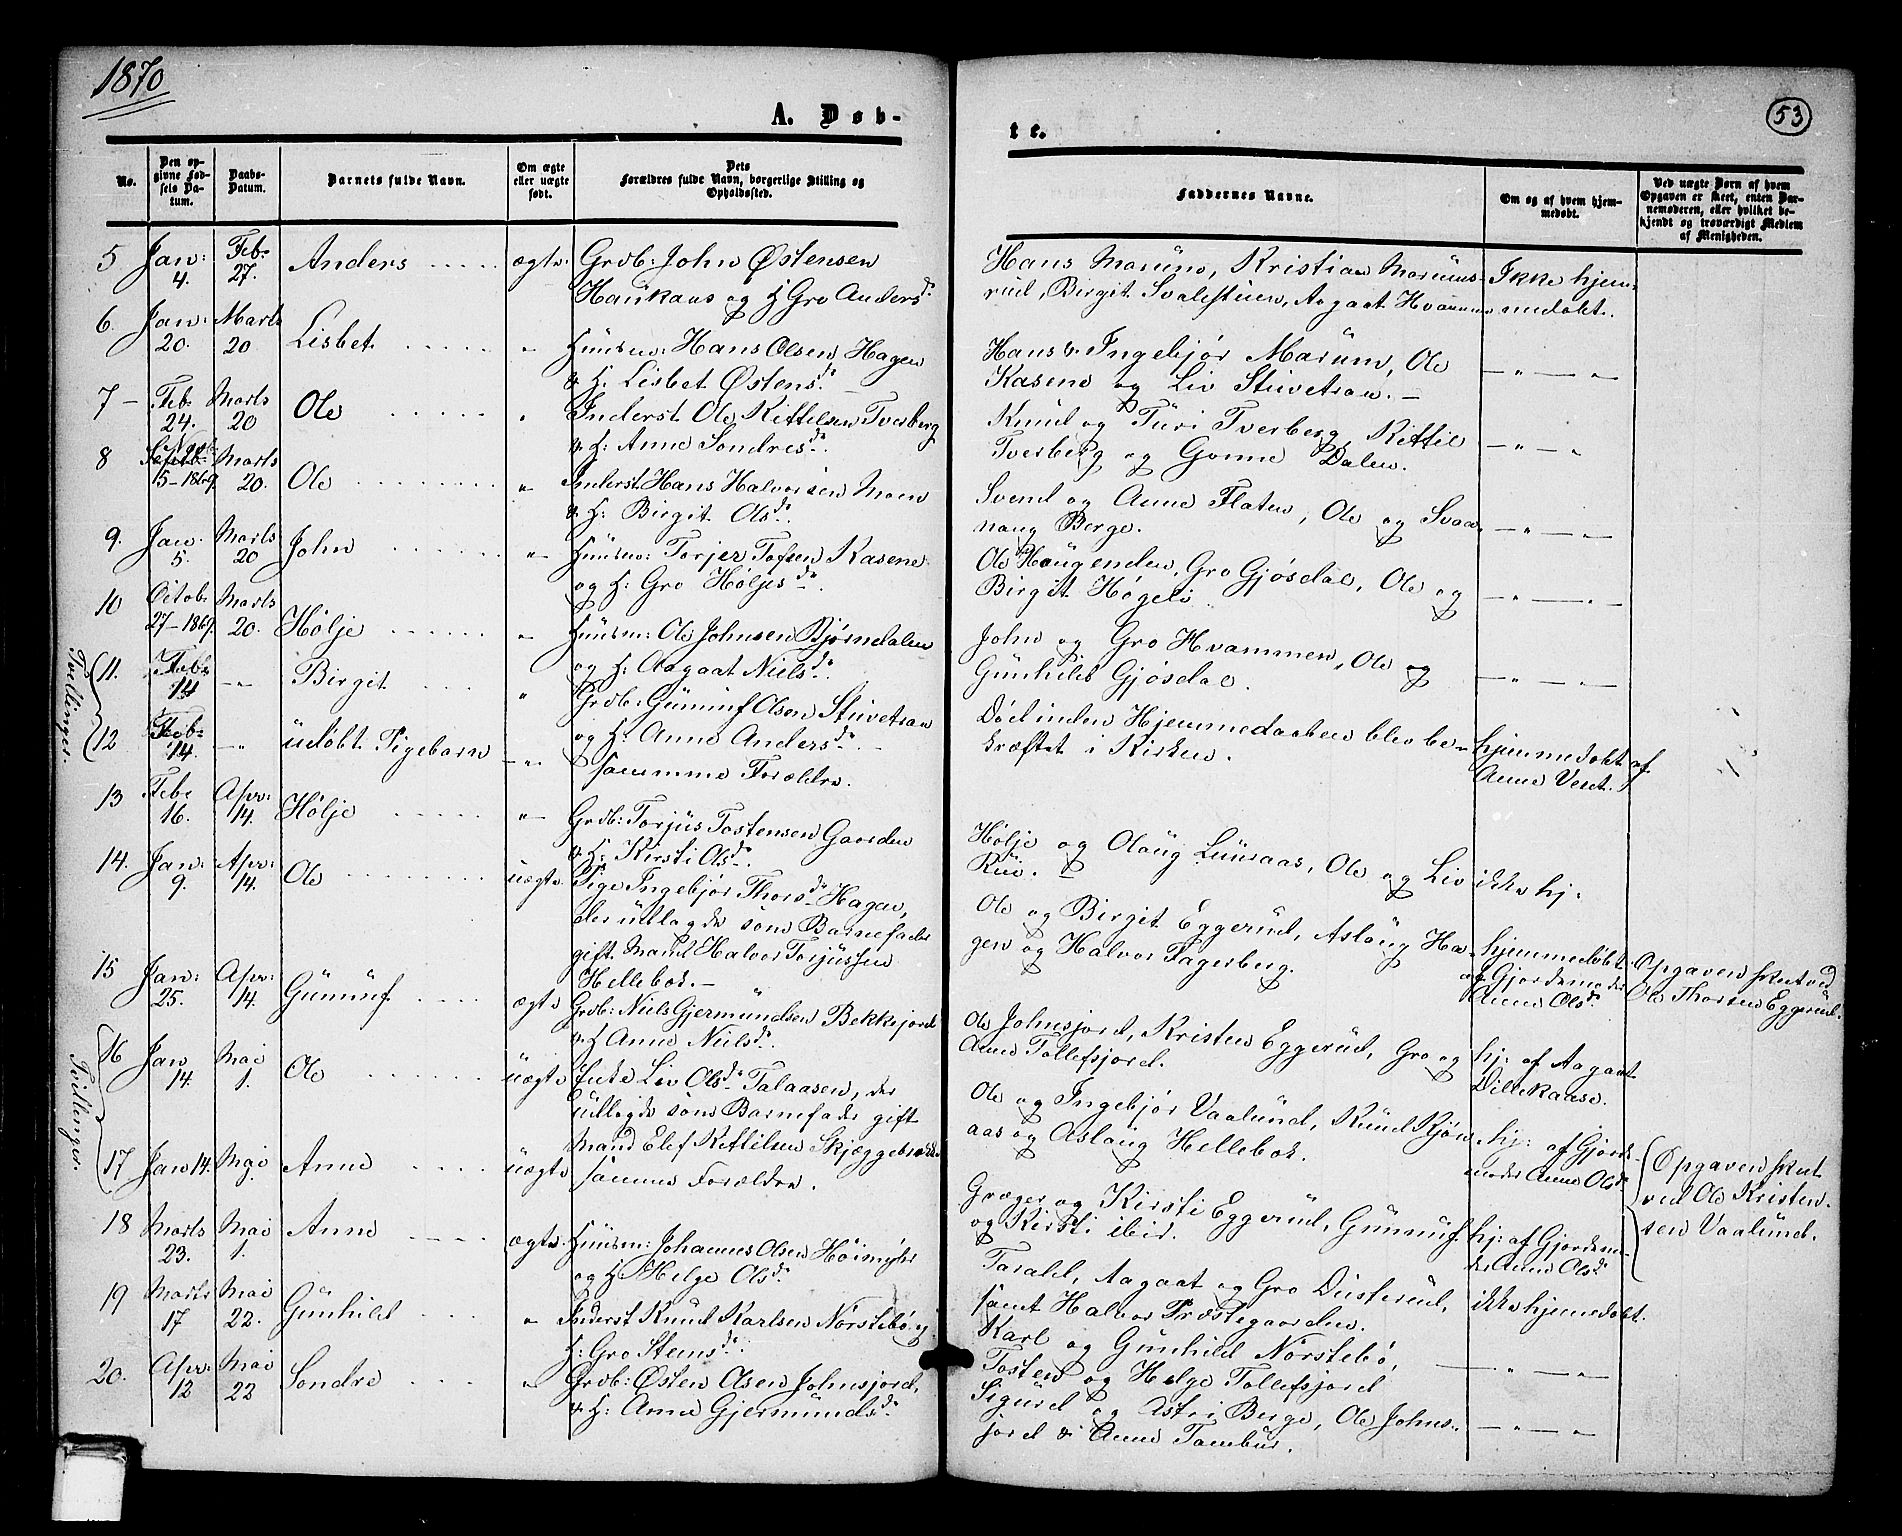 1870
A. Døb-
te.
53
No.
Den op-
givne Fød-
sels Da-
tum.
Daabs-
Datum.
Barnets fulde Navn.
Om ægte
eller uægte
født.
Dets
Forældres fulde Navn, borgerlige Stilling og
Opholdssted.
Faddernes Navne.
Om og af hvem hjem-
medøbt.
Ved uægte Børn af hvem
Opgaven er skeet, enten Bar-
nemoderen, eller hvilket be-
kjendt og troværdigt Medlem
af Menigheden.
5 Jan: 4. Feb: 27. Anders ægte Grdb: John Østensen
Haukaas og H Gro Andersd.
Hans Marumo, Kristian Marums-
rud, Birgit Svalestuen, Aagaat Hvammen
Ikke hjem-
medøbt.
6. Jan: 20. Marts 20 Lisbet " Huusm: Hans Olsen Hagen
& H. Lisbet Østensd.
Hans & Ingebjør Marum, Ole
Kasene og Liv Stuvetran.
— " —
7 Feb. 24. Marts 20 Ole " Inderst Ole Kittelsen Tverberg
& H: Anne Sondresd.
Knud og Turi Tverberg, Kittil
Tverberg og Gonne Dalen.
— " —
8 Novb. 15-1869. Marts 20. Ole " Inderst Hans Halvorsen Moen
& H: Birgit Olsd.
Svend og Anne Flaten, Ole og Svaa-
naug Berge.
— " —
9. Jan. 5. Marts 20 John " Huusm: Torjer Tofsen Kasene
og H: Gro Høljesd.
Ole Haugenden, Gro Gjøsdal, Ole og
Birgit Høgeli
— " —
10 Octob. 27-1869. Marts 20. Hølje " Huusm: Ole Johnsen Bjørndalen
og H: Aagaat Nielsd.
John og Gro Hvammen, Ole og
Gunhild Gjøsdal.
— " —
Tvillinger.
11. Feb: 14 " Birgit " Grdb: Gunnuf Olsen Stuvetran
og H: Anne Andersd.
Død inden Hjemmedaaben blev be-
kræftet i Kirken.
12 Feb: 14. " udøbt Pigebarn " samme Forældre.
hjemmedøbt af
Anne Veset.
13 Feb: 16. Apr: 14. Hølje " Grdb: Torjus Tostensen Gaarden
& H: Kirsti Olsd.
Hølje og Olaug Luraas, Ole og Liv
Rue.
ikke hj:
14. Jan: 9. Apr: 14. Ole uægte Pige Ingebjør Thorsd. Hagen,
der udlagde som Barnefader
gift Mand Halvor Torjussen
Hellebek.
Ole og Birgit Eggerud, Aslaug Ha-
gen og Halvor Fagerberg.
hjemmedøbt
af Gjordemoder
Anne Olsd.
Opgaven skeet ved
Ole Thorsen Eggerud.
15 Jan: 25. Apr: 14. Gunnuf ægte Grdb: Niels Gjermundsen Bekkhjord
& H Anne Nielsd.
Ole Johnsjord, Kristen Eggerud, Gro og
Anne Tollefsjord.
hj: af Aagaat
Dillekaase.
Tvillinger.
16 Jan 14. Mai 1. Ole uægte Enke Liv Olsd. Talaasen, der
udlagde som Barnefader gift
Mand Elef Kittilsen Skjæggebrække
Ole og Ingebjør Vaalund, Knud Kjøn-
aas og Aslaug Hellebek.
hj: af Gjorde-
moder Anne Olsd.
Opgaven skeet
ved Ole Kristen-
sen Vaalund.
17 Jan 14. Mai 1. Anne uægte samme Forældre.
Græger og Kirsti Eggerud, Gunnuf
og Kirsti ibid.
hj: af Gjordemo-
der Anne Olsd.
18 Marts 23. Mai 1. Anne ægte Huusm: Johannes Olsen Høimyhr
og H Helge Olsd.
Tarald, Aagaat og Gro Dusterud,
samt Halvor Præstegaarden.
ikke hjemedøbt.
19 Marts 17 Mai 22. Gunhild " Inderst Knud Karlsen Nørstebø og
H: Gro Steinsd.
Karl og Gunhild Nørstebø,
Tosten og Helge Tollefsjord
— " —
20. Apr: 12 Mai 22 Sondre " Grdb: Østen Olsen Johnsjord,
& H: Anne Gjermundsd.
Sigurd og Astri Berge, Ole Johns-
jord & Anne Tambur.
— " —